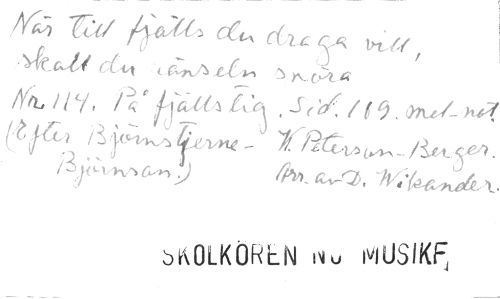 När till fjälls du draga vill,
skall du ränseln snöra
Nr. 114. På fjällstig. Sid. 169. mel-not.
(Efter Björnstjerne- W. Peterson-Berger.
Björnson.) Arr. av D. Wikander.
SKOLKÖREN NO MUSIKF